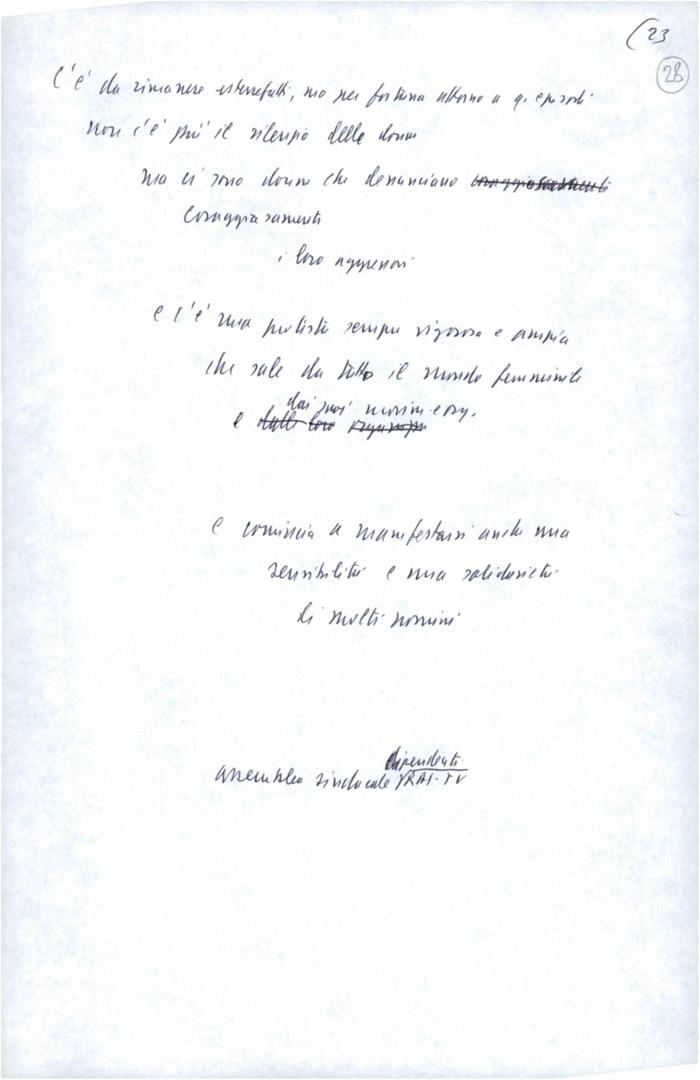 (23
28
C'è da rimanere esterrefatti, ma per fortuna attorno a q. episodi
non c'è più il silenzio delle donne
ma ci sono donne che denunciano coraggiosamente
coraggiosamente
i loro aggressori
e c'è una protesta sempre vigorosa e ampia
che sale da tutto il mondo femminile
dai suoi movim. e org.
e dalle loro
e comincia a manifestarsi anche una
sensibilità e una solidarietà
di molti uomini
dipendenti
assemblea sindacale RAI-TV